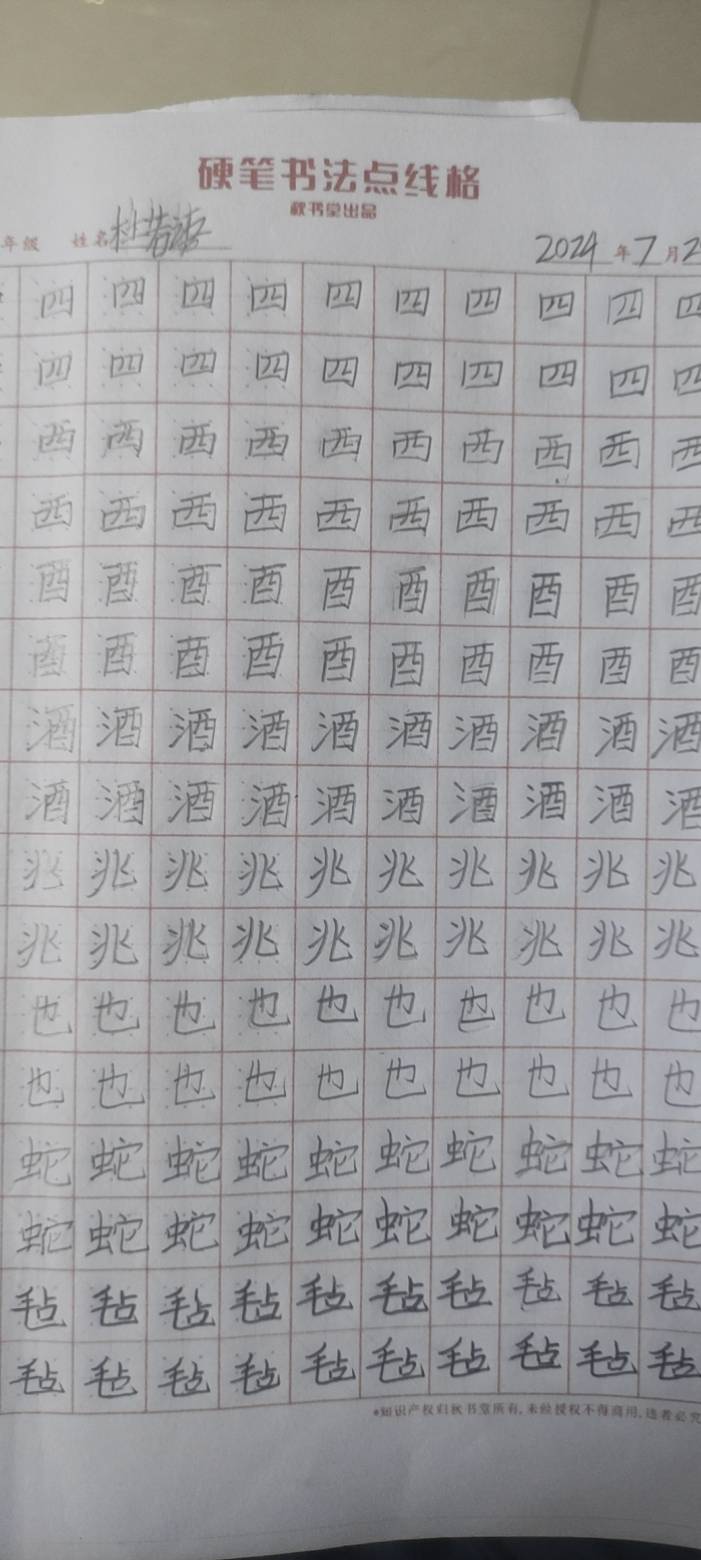 硬笔书法点线格
秋书堂出品
年级 姓名 杜若 2024 年 7 月 2
四 四 四 四 四 四 四 四 四 四
四 四 四 四 四 四 四 四 四 四
西 西 西 西 西 西 西 西 西 西
西 西 西 西 西 西 西 西 西 西
酉 酉 酉 酉 酉 酉 酉 酉 酉 酉
酉 酉 酉 酉 酉 酉 酉 酉 酉 酉
酒 酒 酒 酒 酒 酒 酒 酒 酒 酒
酒 酒 酒 酒 酒 酒 酒 酒 酒 酒
兆 兆 兆 兆 兆 兆 兆 兆 兆 兆
兆 兆 兆 兆 兆 兆 兆 兆 兆 兆
也 也 也 也 也 也 也 也 也 也
也 也 也 也 也 也 也 也 也 也
蛇 蛇 蛇 蛇 蛇 蛇 蛇 蛇 蛇 蛇
蛇 蛇 蛇 蛇 蛇 蛇 蛇 蛇 蛇 蛇
毡 毡 毡 毡 毡 毡 毡 毡 毡 毡
毡 毡 毡 毡 毡 毡 毡 毡 毡 毡
*知识产权归秋书堂所有，未经授权不得商用，违者必究